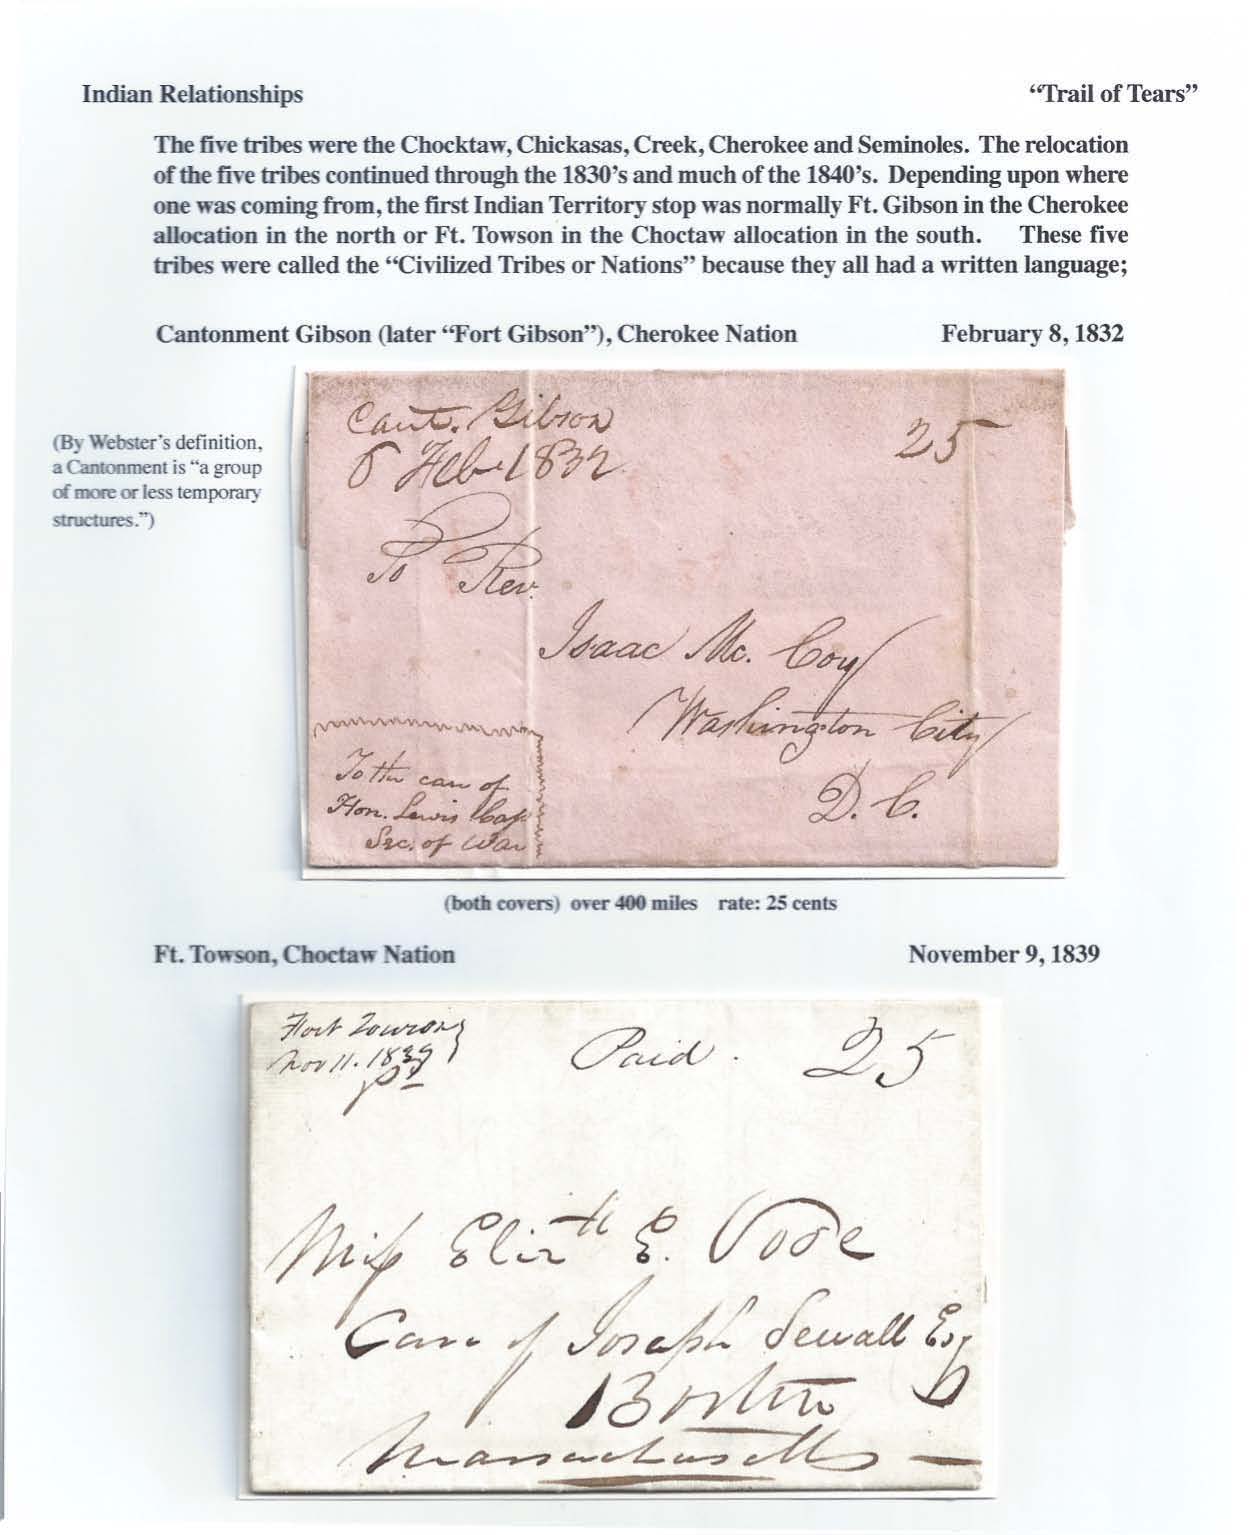 Indian Relationships
“Trail of Tears”
The five tribes were the Chocktaw, Chickasas, Creek, Cherokee and Seminoles. The relocation
of the five tribes continued through the 1830’s and much of the 1840’s. Depending upon where
one was coming from, the first Indian Territory stop was normally Ft. Gibson in the Cherokee
allocation in the north or Ft. Towson in the Choctaw allocation in the south. These five
tribes were called the “Civilized Tribes or Nations” because they all had a written language;
Cantonment Gibson (later “Fort Gibson”), Cherokee Nation
February 8, 1832
(By Webster’s definition,
a Cantonment is “a group
of more or less temporary
structures.”)
Cant. Gibson
8 Feb. 1832
25
To Rev.
Isaac Mc. Coy
Washington City
D. C.
To the care of
Hon. Lewis Cass
Sec. of War
(both covers) over 400 miles rate: 25 cents
Ft. Towson, Choctaw Nation
November 9, 1839
Fort Towson
Nov 11. 1839
Paid.
25
Miss Elizth E. Vose
Care of Joseph Sewall Esq
Boston
Massachusetts